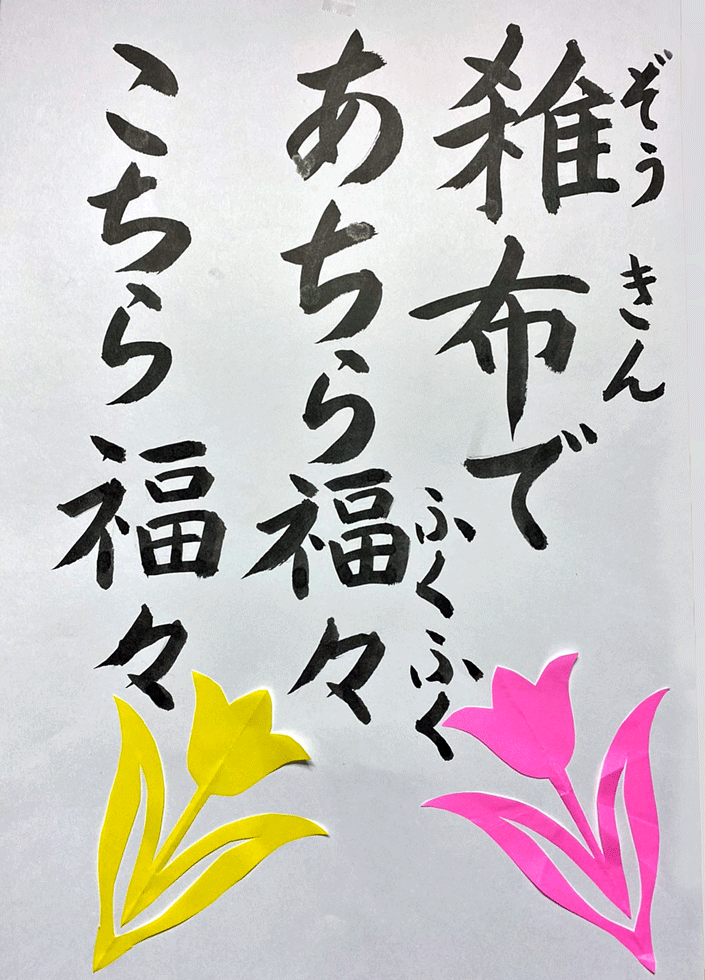 雑布で
ぞうきん
あちら福々
ふくふく
こちら福々